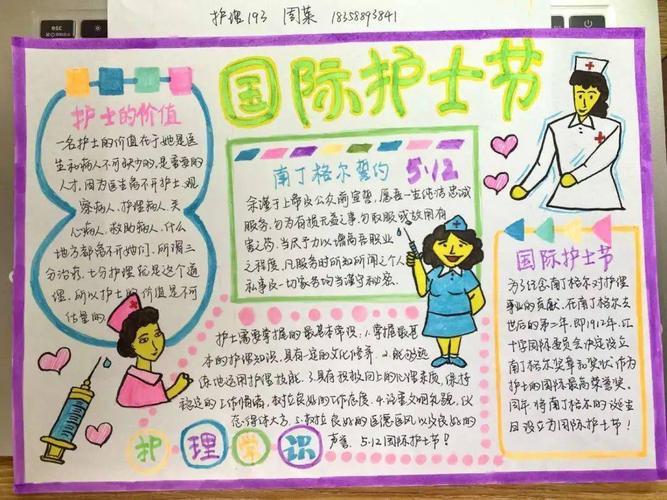 esc
护理193 周菜 18358893841
国际护士节
护士的价值
一名护士的价值在于她是医
生和病人不可缺少的,是重要的
人才,因为医生离不开护士,观
察病人,护理病人,关
心病人,救助病人,什么
地方都离不开她们,所谓三
分治疗,七分护理就是这个道
理,所以护士的价值是不可
估量的。
南丁格尔誓约 5·12
余谨于上帝及公众前宣誓,愿吾一生纯洁忠诚
服务,勿为有损无益之事,勿取服或故用有
害之药,当尽予力以增高吾职业
之程度,凡服务时所知所闻之个人
私事及一切家务均当谨守秘密。
国际护士节
为了纪念南丁格尔对护理
事业的贡献,在南丁格尔去
世后的第二年,即1912年,红
十字国际委员会决定设立
南丁格尔奖章和奖状,作为
护士的国际最高荣誉奖
同年将南丁格尔的诞生
日设立为国际护士节!
护士需要掌握的最基本常识:1.掌握最基
本的护理知识,具有一定的文化修养。2.能够熟
练地运用护理技能。3.具有积极向上的心理素质,保持
稳定的工作情绪,树立良好的工作态度。4.语言文明礼貌,仪
态得体大方。5.树立良好的医德医风以及良好的
声誉。5.12国际护士节!
护理学识